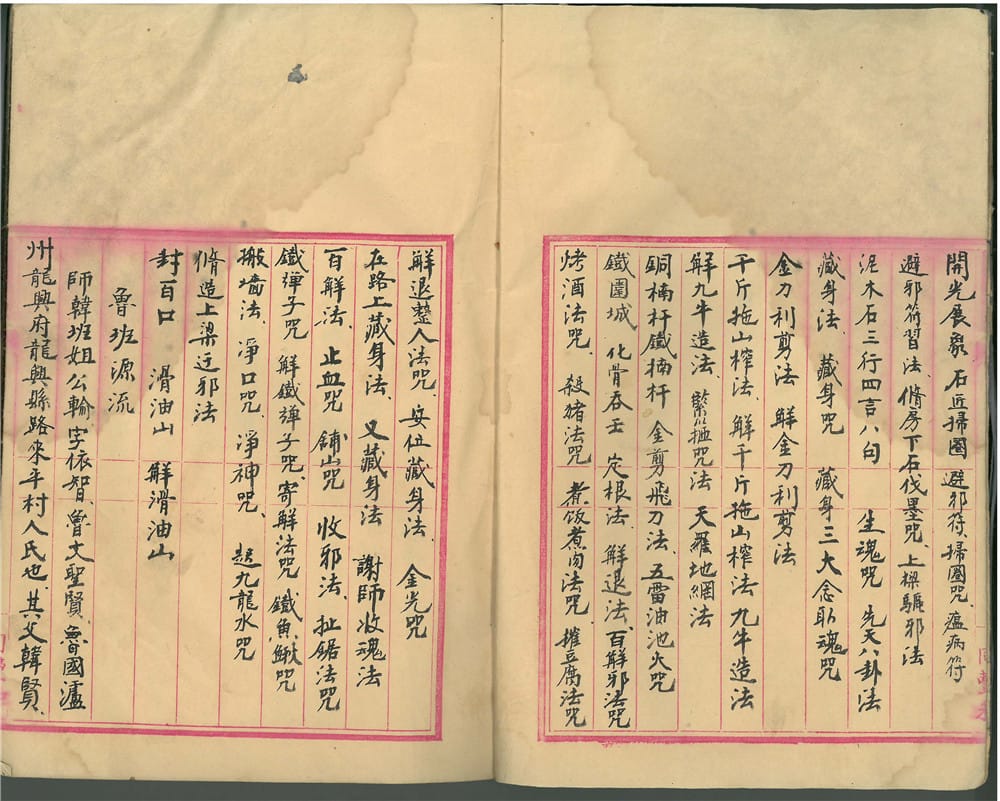 開光展象 石匠掃圈 避邪符、掃圈咒、瘟病符
避邪符習法、脩房下石伐墨咒、上樑驅邪法
泥木石三行四言八句 生魂咒 先天八卦法
藏身法 藏身咒 藏身三大念取魂咒
金刀利剪法 解金刀利剪法
千斤拖山榨法、解千斤拖山榨法 九牛造法
解九牛造法、緊箍咒法 天羅地網法
銅楠杆鐵楠杆 金剪飛刀法、五雷油池火咒
鐵圍城 化骨吞 定根法、解退法、百解邪法咒
烤酒法咒、殺豬法咒 煮饭煮肉法咒、摧豆腐法咒
解退整人法咒、安位藏身法、金光咒
在路上藏身法、又藏身法 謝師收魂法
百解法、止血咒 鋪山咒 收邪法、扯鋸法咒
鐵彈子咒 解鐵彈子咒、寄解法咒 鐵魚鰍咒
搬墙法、淨口咒、淨神咒、起九龍水咒
脩造上梁近邪法
封百口 滑油山 解滑油山
魯班源流
師韓班姐公輸、字依智、魯文聖賢、魯國瀘
州龍興府龍興縣路來平村人氏也、其父韓賢、